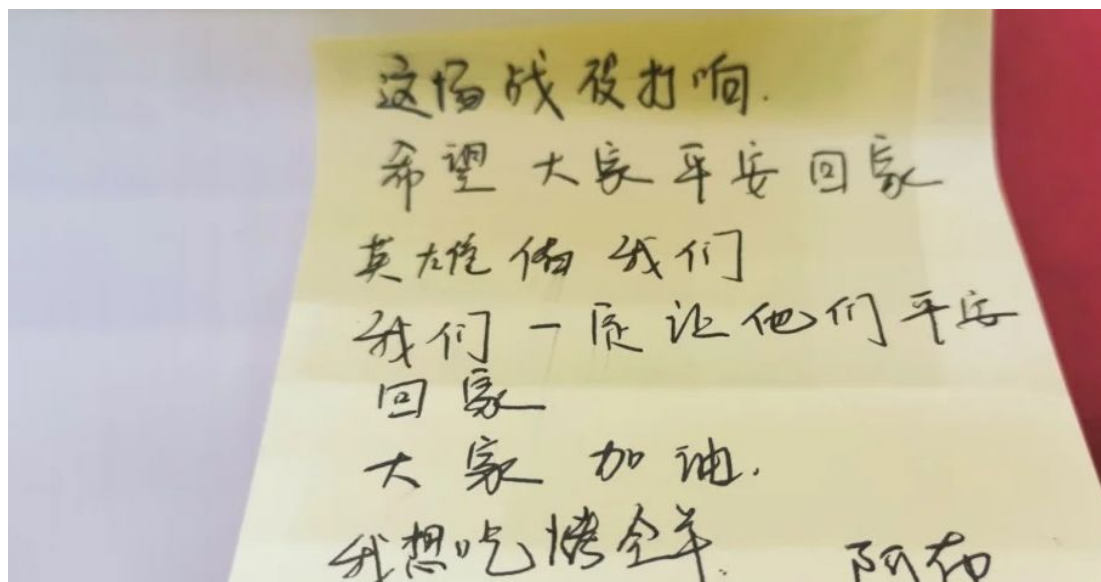 这场战役打响.
希望大家平安回家
英雄佑我们
我们一定让他们平安
回家
大家加油.
我想吃烤全羊.
阿布